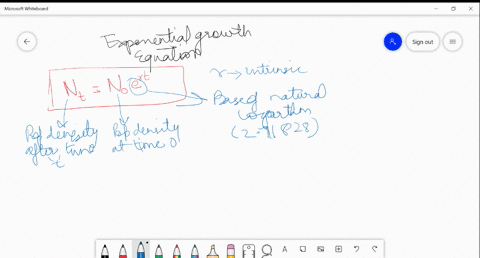 Microsoft Whiteboard
Sign out
Exponential growth
Equation
Nt = N0 e^rt
r → intrinsic
Base of natural
logarithm
(2.71828)
Pop density
after time
t
Pop density
at time 0
A